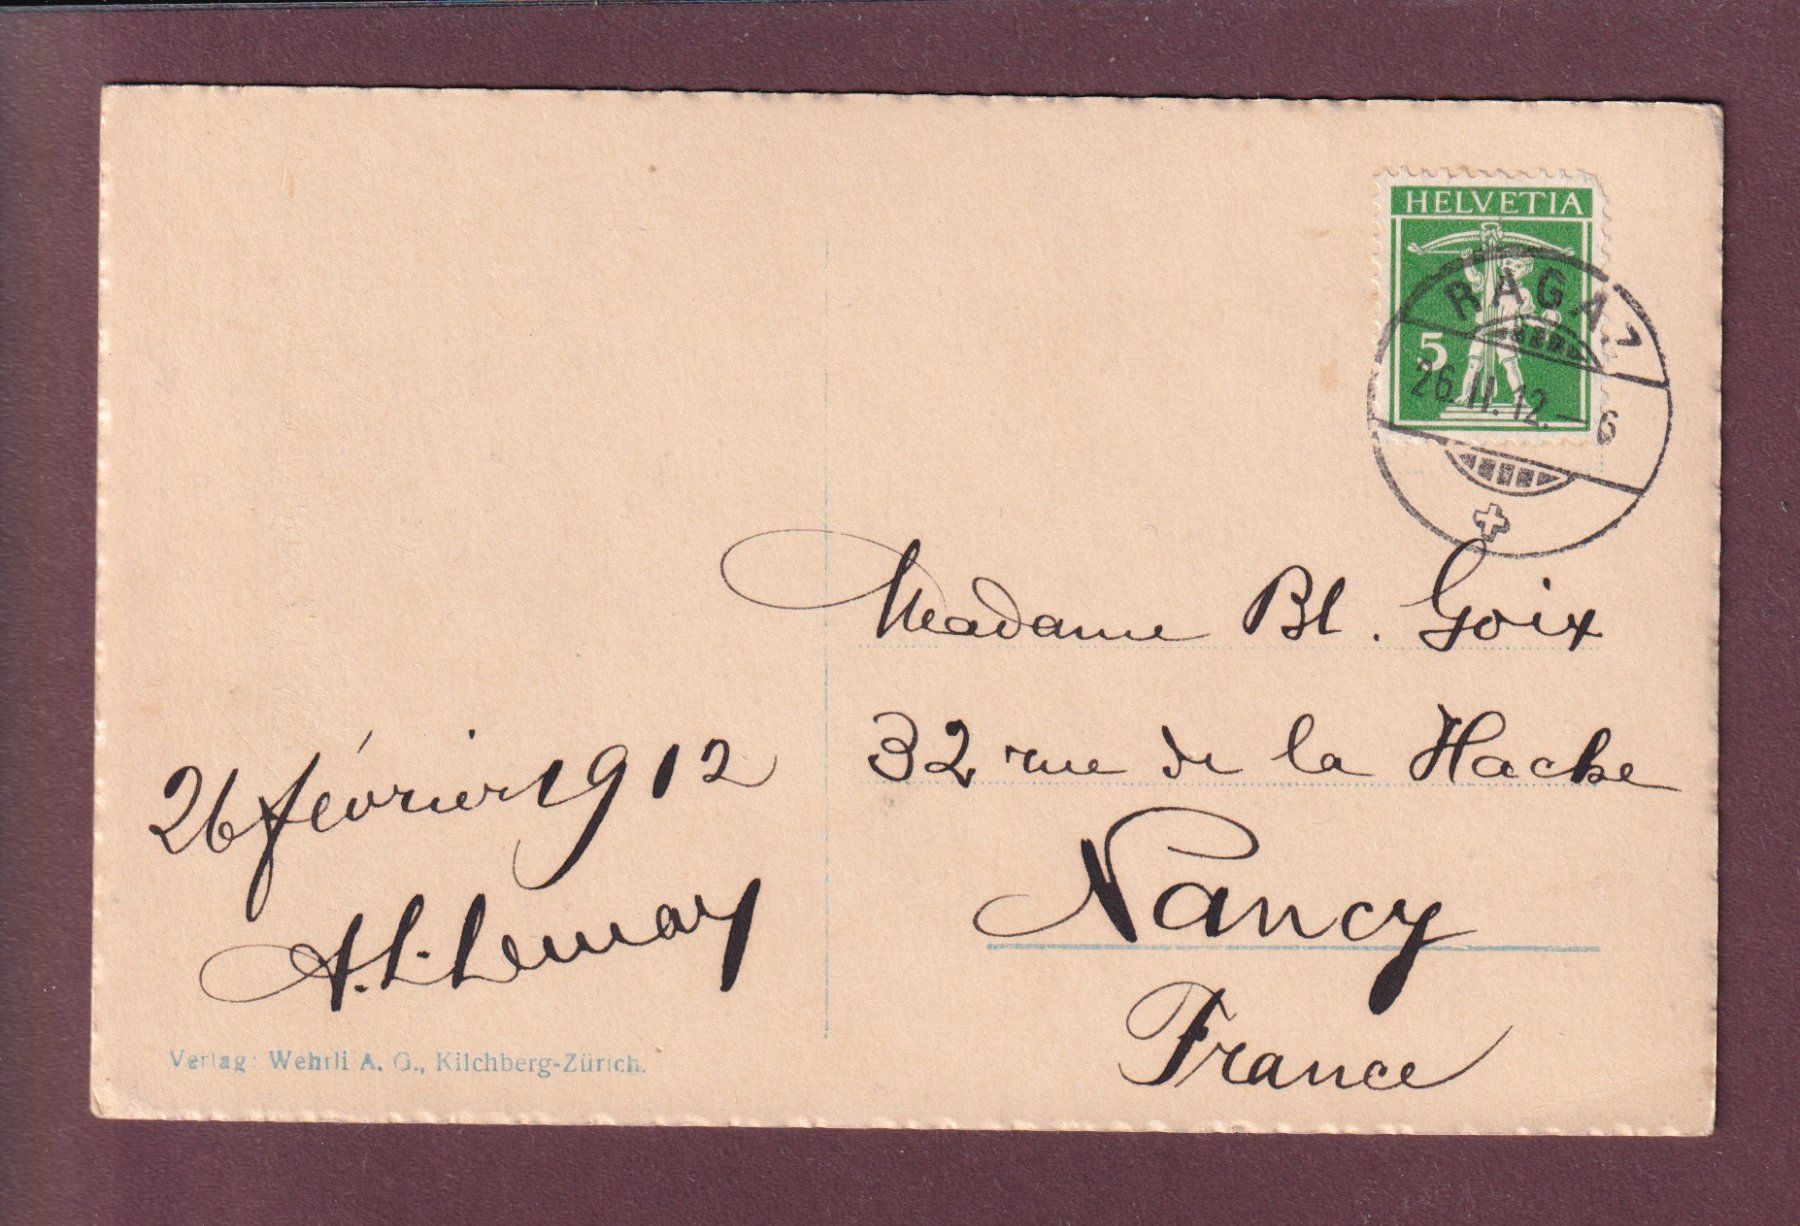 HELVETIA
5
RAGAZ
26.II.12.—6
Madame Bl. Goix
32 rue de la Hache
Nancy
France
26 février 1912
A. L. Lemay
Verlag: Wehrli A. G., Kilchberg-Zürich.